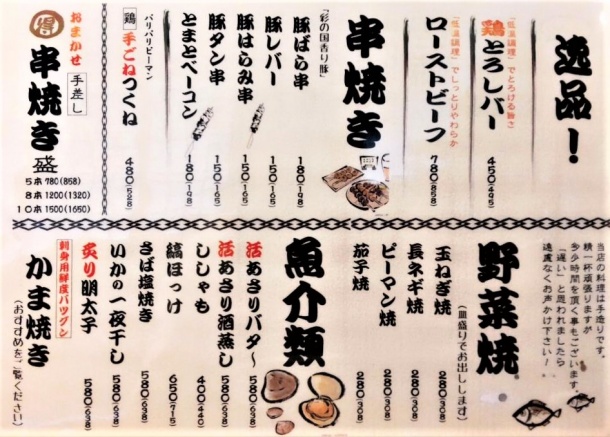 逸品！
「低温調理」でとろける旨さ
鶏とろレバー 450(495)
「低温調理」でしっとりやわらか
ローストビーフ 780(858)
串焼き
「彩の国香り豚」
豚ばら串 180(198)
豚レバー 150(165)
豚はらみ串 150(165)
豚タン串 150(165)
とまとベーコン 180(198)
パリパリピーマン
鶏 手ごねつくね 480(528)
得 おまかせ 手差し
串焼き盛
5本 780(858)
8本 1200(1320)
10本 1500(1650)
当店の料理は手造りです。
精一杯頑張りますが
多少時間を頂く事もございます。
「遅い」と思われましたら
遠慮なくお声かけ下さい！
野菜焼
(一皿盛りでお出しします)
玉ねぎ焼 280(308)
長ネギ焼 280(308)
ピーマン焼 280(308)
茄子焼 280(308)
魚介類
活あさりバター 580(638)
活あさり酒蒸し 580(638)
ししゃも 400(440)
縞ほっけ 650(715)
さば塩焼き 580(638)
いかの一夜干し 580(638)
炙り明太子 580(638)
刺身用鮮度バツグン
かま焼き
(おすすめをご覧ください)